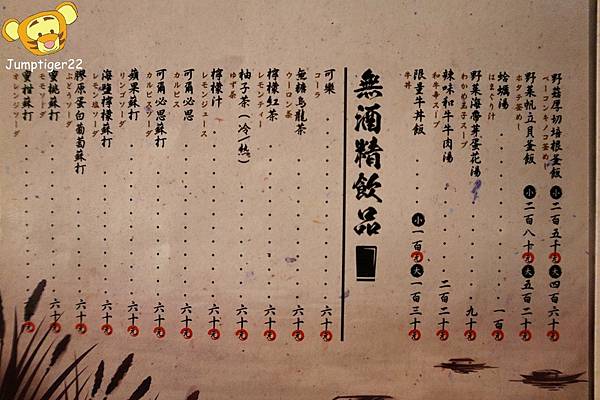 Jumptiger22
野菇厚切培根釜飯 小 二百五十元 大 四百六十元
ベーコンキノコ釜めし
野菜帆立貝釜飯 小 二百八十元 大 五百二十元
ホタテ釜めし
蛤蠣湯 一百元
はまぐり汁
野菜海帶芽蛋花湯 九十元
わかめ玉子スープ
辣味和牛牛肉湯 二百二十元
和牛辛スープ
限量牛丼飯 小 一百元 大 一百三十元
牛丼
無酒精飲品
可樂 六十元
コーラ
無糖烏龍茶 六十元
ウーロン茶
檸檬紅茶 六十元
レモンティー
柚子茶(冷/熱) 六十元
ゆず茶
檸檬汁 六十元
レモンジュース
可爾必思 六十元
カルピス
可爾必思蘇打 六十元
カルピスソーダ
蘋果蘇打 六十元
リンゴソーダ
海鹽檸檬蘇打 六十元
レモン塩ソーダ
膠原蛋白葡萄蘇打 六十元
ぶどうソーダ
蜜桃蘇打 六十元
蜜柑蘇打
オレンジソーダ